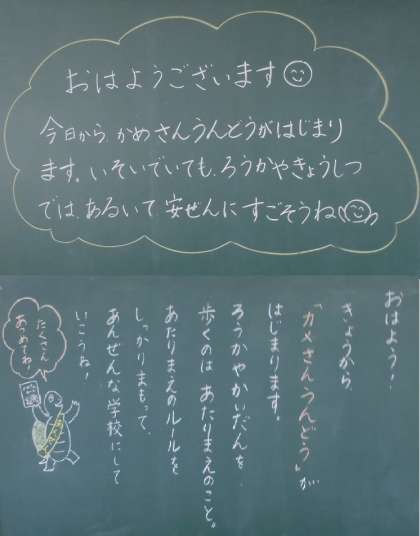 おはようございます
今日から、かめさんうんどうがはじまり
ます。いそいでいても、ろうかやきょうしつ
では、あるいて安ぜんにすごそうね
おはよう!
きょうから、
「カメさんうんどう」が
はじまります。
ろうかやかいだんを、
歩くのは あたりまえのこと。
あたりまえのルールを
しっかりまもって、
あんぜんな学校にして
いこうね!
たくさん
あつめてね!